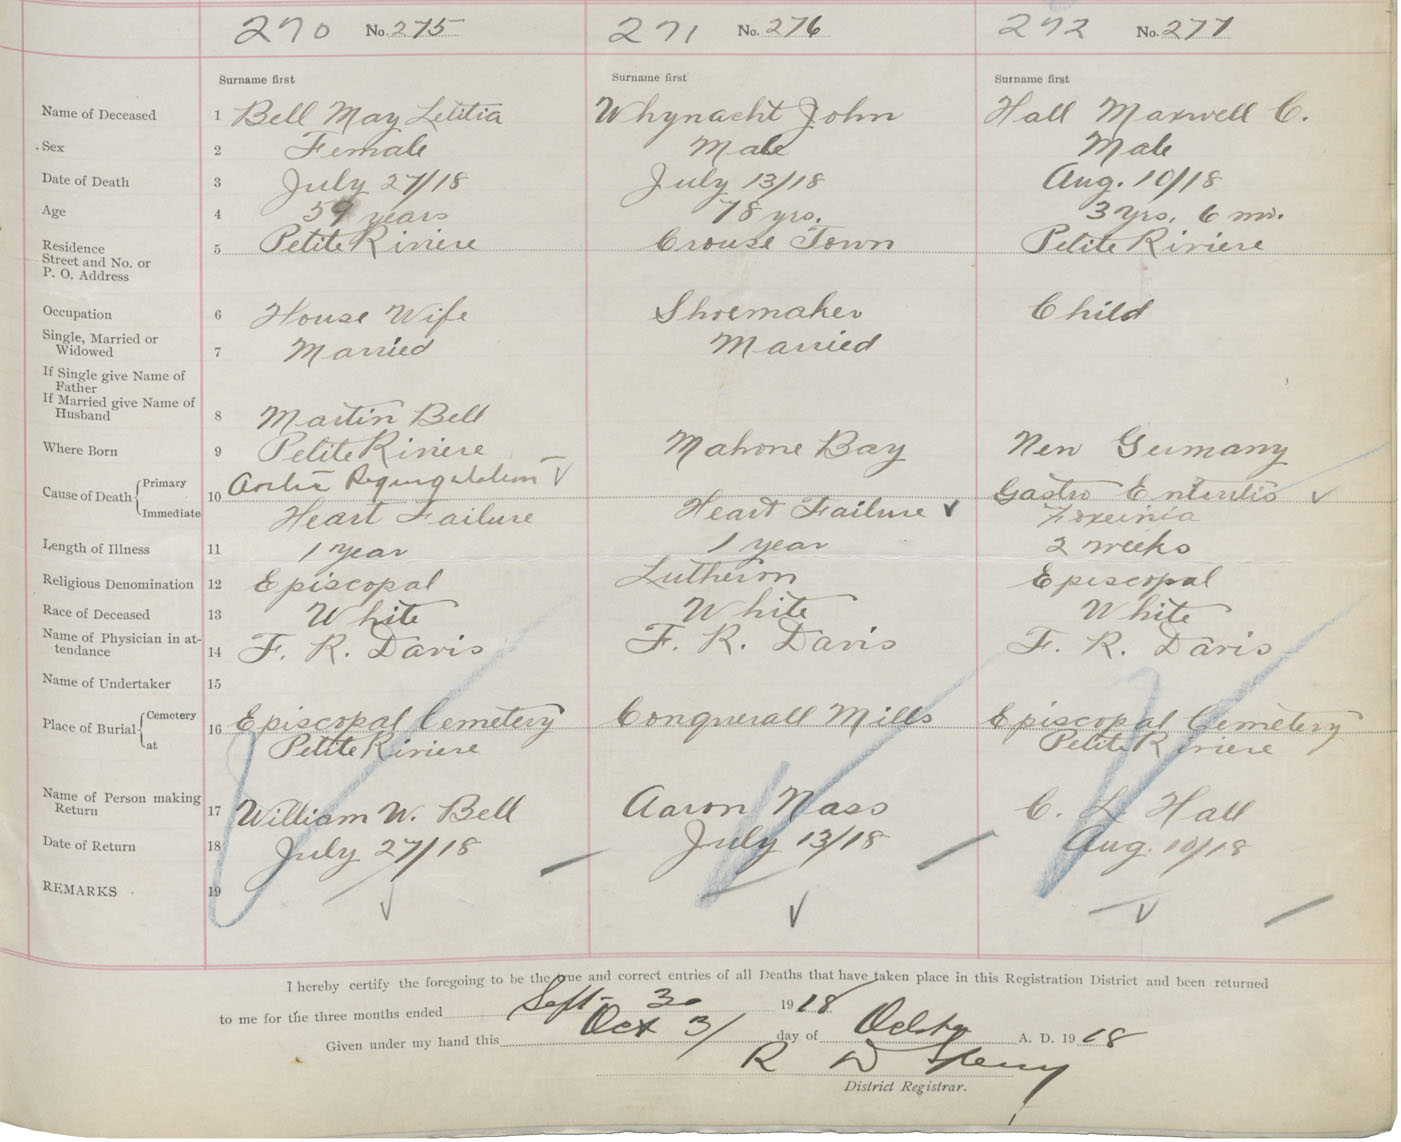 270 No. 275 271 No. 276 272 No. 277
Surname first Surname first Surname first
Name of Deceased 1 Bell May Letitia Whynacht John Hall Maxwell C.
Sex 2 Female Male Male
Date of Death 3 July 27/18 July 13/18 Aug. 10/18
Age 4 59 years 78 yrs. 3 yrs. 6 mo.
Residence
Street and No. or
P. O. Address 5 Petite Riviere Crouse Town Petite Riviere
Occupation 6 House Wife Shoemaker Child
Single, Married or
Widowed 7 Married Married
If Single give Name of
Father
If Married give Name of
Husband 8 Martin Bell
Where Born 9 Petite Riviere Mahone Bay New Germany
Cause of Death Primary 10 Aortic Regurgitation Gastro Enteritis
Immediate Heart Failure Heart Failure
Length of Illness 11 1 year 1 year 2 weeks
Religious Denomination 12 Episcopal Lutheron Episcopal
Race of Deceased 13 White White White
Name of Physician in at-
tendance 14 F. R. Davis F. R. Davis F. R. Davis
Name of Undertaker 15
Place of Burial Cemetery 16 Episcopal Cemetery Conquerall Mills Episcopal Cemetery
at Petite Riviere Petite Riviere
Name of Person making
Return 17 William W. Bell Aaron Nass C. L. Hall
Date of Return 18 July 27/18 July 13/18 Aug. 10/18
REMARKS 19
I hereby certify the foregoing to be the true and correct entries of all Deaths that have taken place in this Registration District and been returned
to me for the three months ended Sept 30 1918
Given under my hand this Oct 31 day of A. D. 1918
R D Sperry
District Registrar.